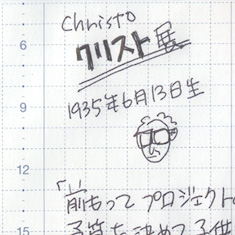 Christo
クリスト展
6
1935年6月13日生
9
12
「前もって プロジェクトの
15 予算を決めて子供